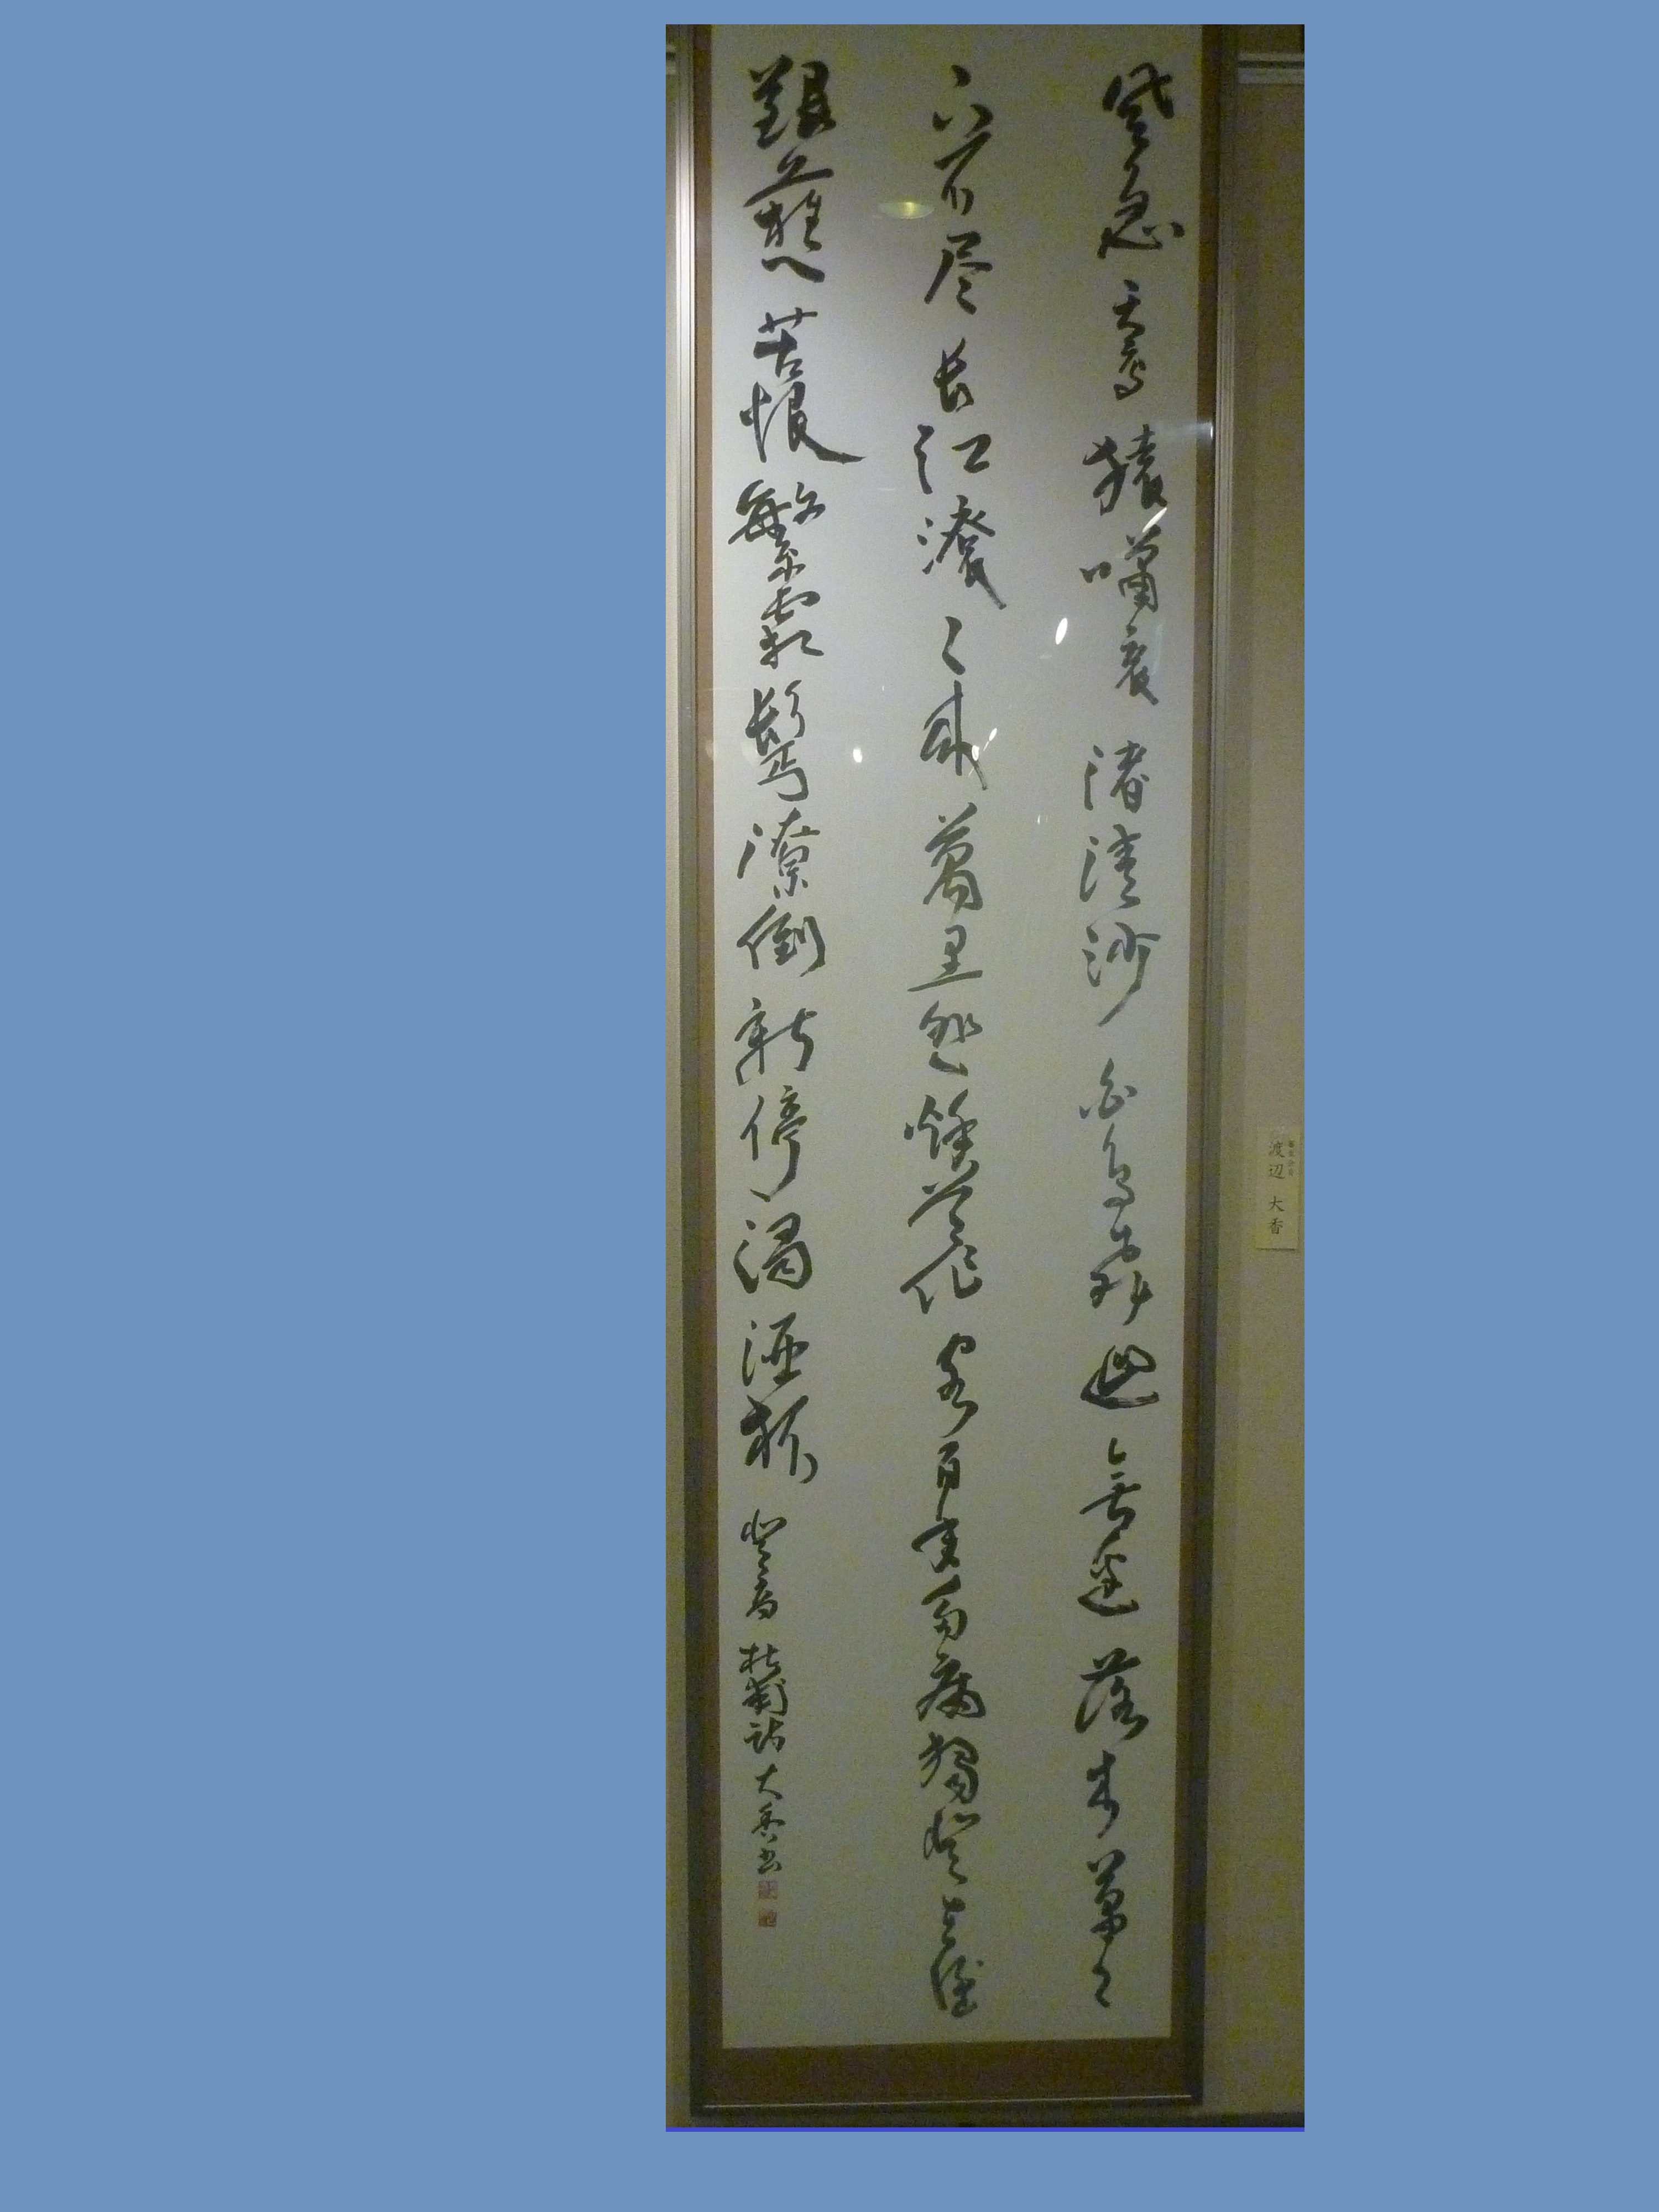 風急天高猿嘯哀渚清沙白鳥飛廻無邊落木蕭々
下不尽長江滾々来萬里悲秋常作客百年多病獨登台
艱難苦恨繁霜鬢潦倒新停濁酒杯 登高 杜甫詩 大香書
渡辺 大香